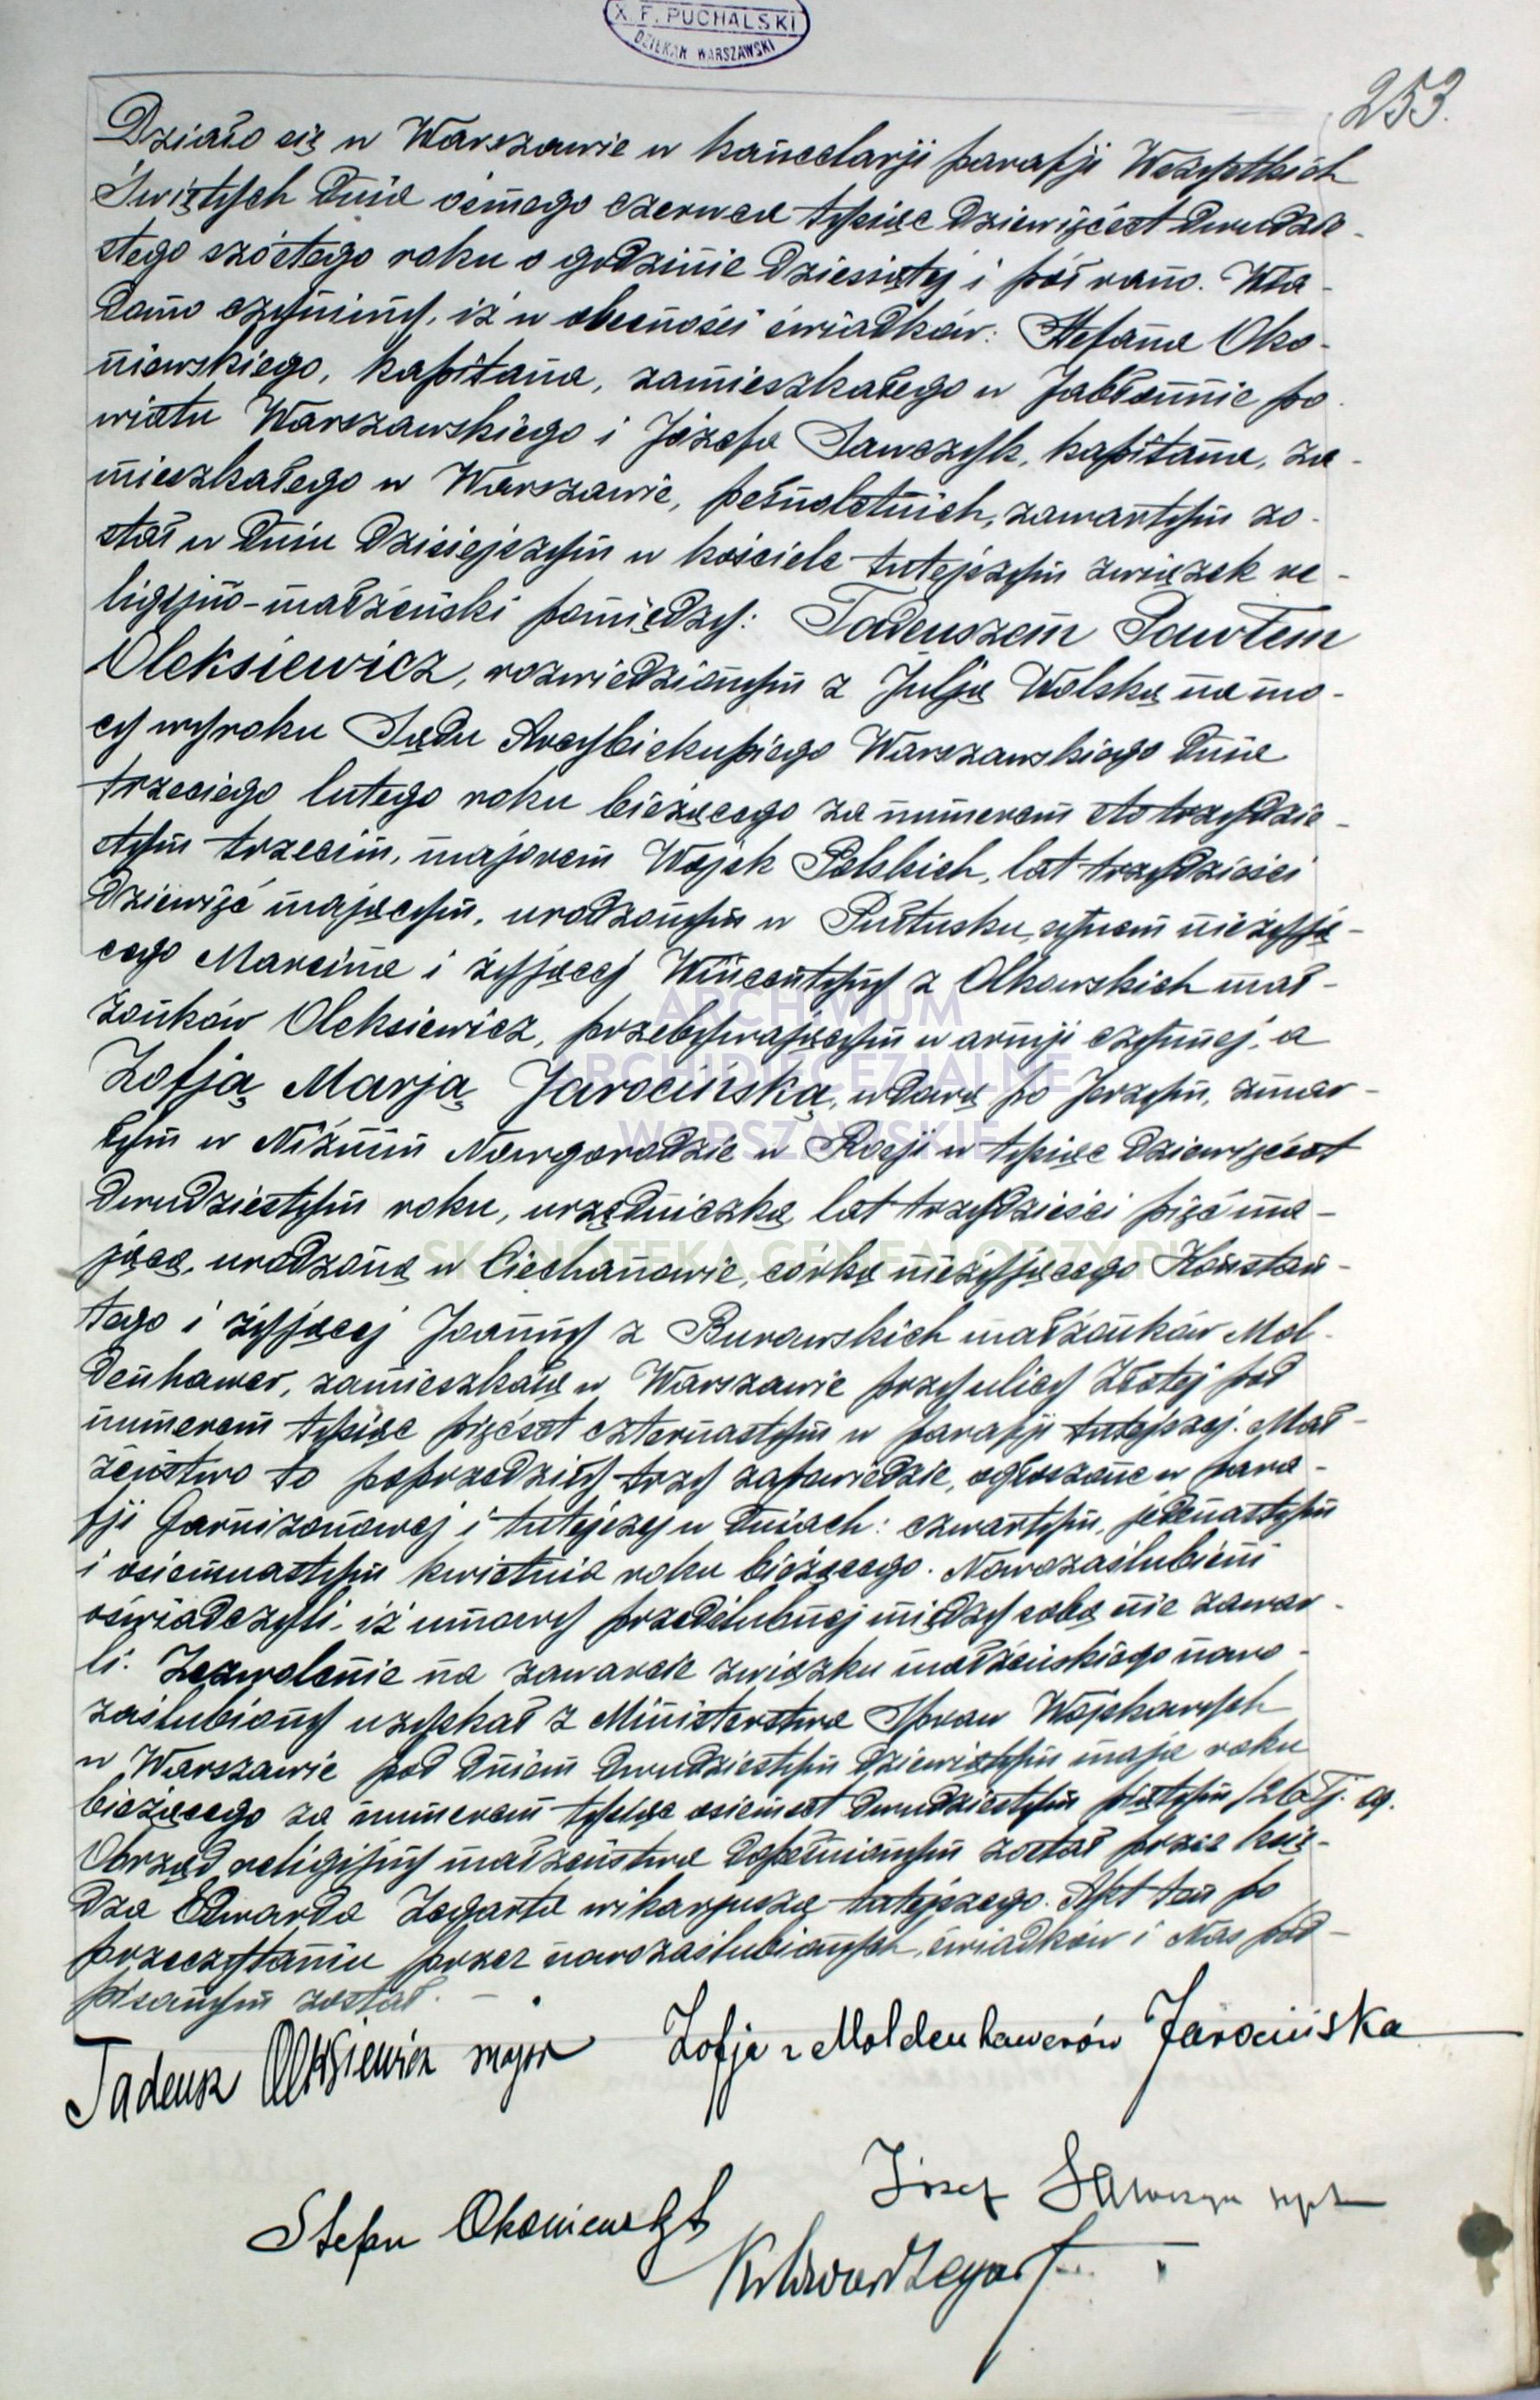 X. F. PUCHALSKI
DZIEKAN WARSZAWSKI
253.
Działo się w Warszawie w kancelarji parafji Wszystkich
Świętych dnia ósmego czerwca tysiąc dziewięćset dwudzie-
stego szóstego roku o godzinie dziesiątej i pół rano. Wia-
domo czynimy, iż w obecności świadków: Stefana Oko-
niewskiego, kapitana, zamieszkałego w Jabłonnie po-
wiatu Warszawskiego i Józefa Sawczyk, kapitana, za-
mieszkałego w Warszawie, pełnoletnich, zawartym zo-
stał w dniu dzisiejszym w kościele tutejszym związek re-
ligijno-małżeński pomiędzy: Tadeuszem Pawłem
Oleksiewicz, rozwiedzionym z Julją Wolską na mo-
cy wyroku Sądu Arcybiskupiego Warszawskiego dnia
trzeciego lutego roku bieżącego za numerem sto trzydzie-
stym trzecim, majorem Wojsk Polskich, lat trzydzieści
dziewięć mającym, urodzonym w Pułtusku, synem nieżyją-
cego Marcina i żyjącej Wincentyny z Olkowskich mał-
żonków Oleksiewicz, przebywającym w armji czynnej, a
Zofją Marją Jarocińską, wdową po Jerzym, zmar-
łym w Niżnim Nowgorodzie w Rosji w tysiąc dziewięćset
dwudziestym roku, urzędniczką lat trzydzieści pięć ma-
jącą, urodzoną w Ciechanowie, córką nieżyjącego Konstan-
tego i żyjącej Joanny z Burawskich małżonków Mol-
denhawer, zamieszkałą w Warszawie przy ulicy Złotej pod
numerem tysiąc pięćset czternastym w parafji tutejszej. Mał-
żeństwo to poprzedziły trzy zapowiedzie, ogłoszone w para-
fji Garnizonowej i tutejszej w dniach: czwartym, jedenastym
i osiemnastym kwietnia roku bieżącego. Nowozaślubieni
oświadczyli, iż umowy przedślubnej między sobą nie zawar-
li. Zezwolenie na zawarcie związku małżeńskiego nowo-
zaślubiony uzyskał z Ministerstwa Spraw Wojskowych
w Warszawie pod dniem dwudziestym dziewiątym maja roku
bieżącego za numerem tysiąc osiemset dwudziestym piątym /26
Obrzęd religijny małżeństwa dopełnionym został przez księ-
dza Edwarda Zegarta wikarjusza tutejszego. Akt ten po
przeczytaniu przez nowozaślubionych, świadków i Nas pod-
pisanym został.
Tadeusz Oleksiewicz major
Zofja z Moldenhawerów Jarocińska
Józef Sawczyk kpt
Stefan Okoniewski
Ks Edward Zegart
ARCHIWUM
ARCHIDIECEZJALNE
WARSZAWSKIE
SKANOTEKA.GENEALODZY.PL